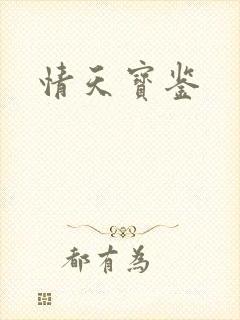 情天寶鉴
都有為